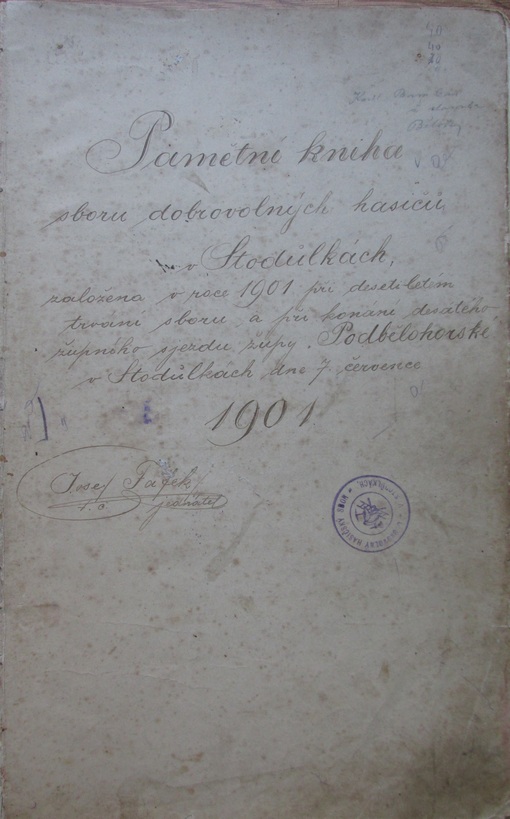 40
40
30
Pamětní kniha
sboru dobrovolných hasičů
v Stodůlkách,
založena v roce 1901 při desetiletím
trvání sboru a při konání desátého
župního sjezdu župy Podbělohorské
v Stodůlkách dne 7. července
1901
Josef
jednatel